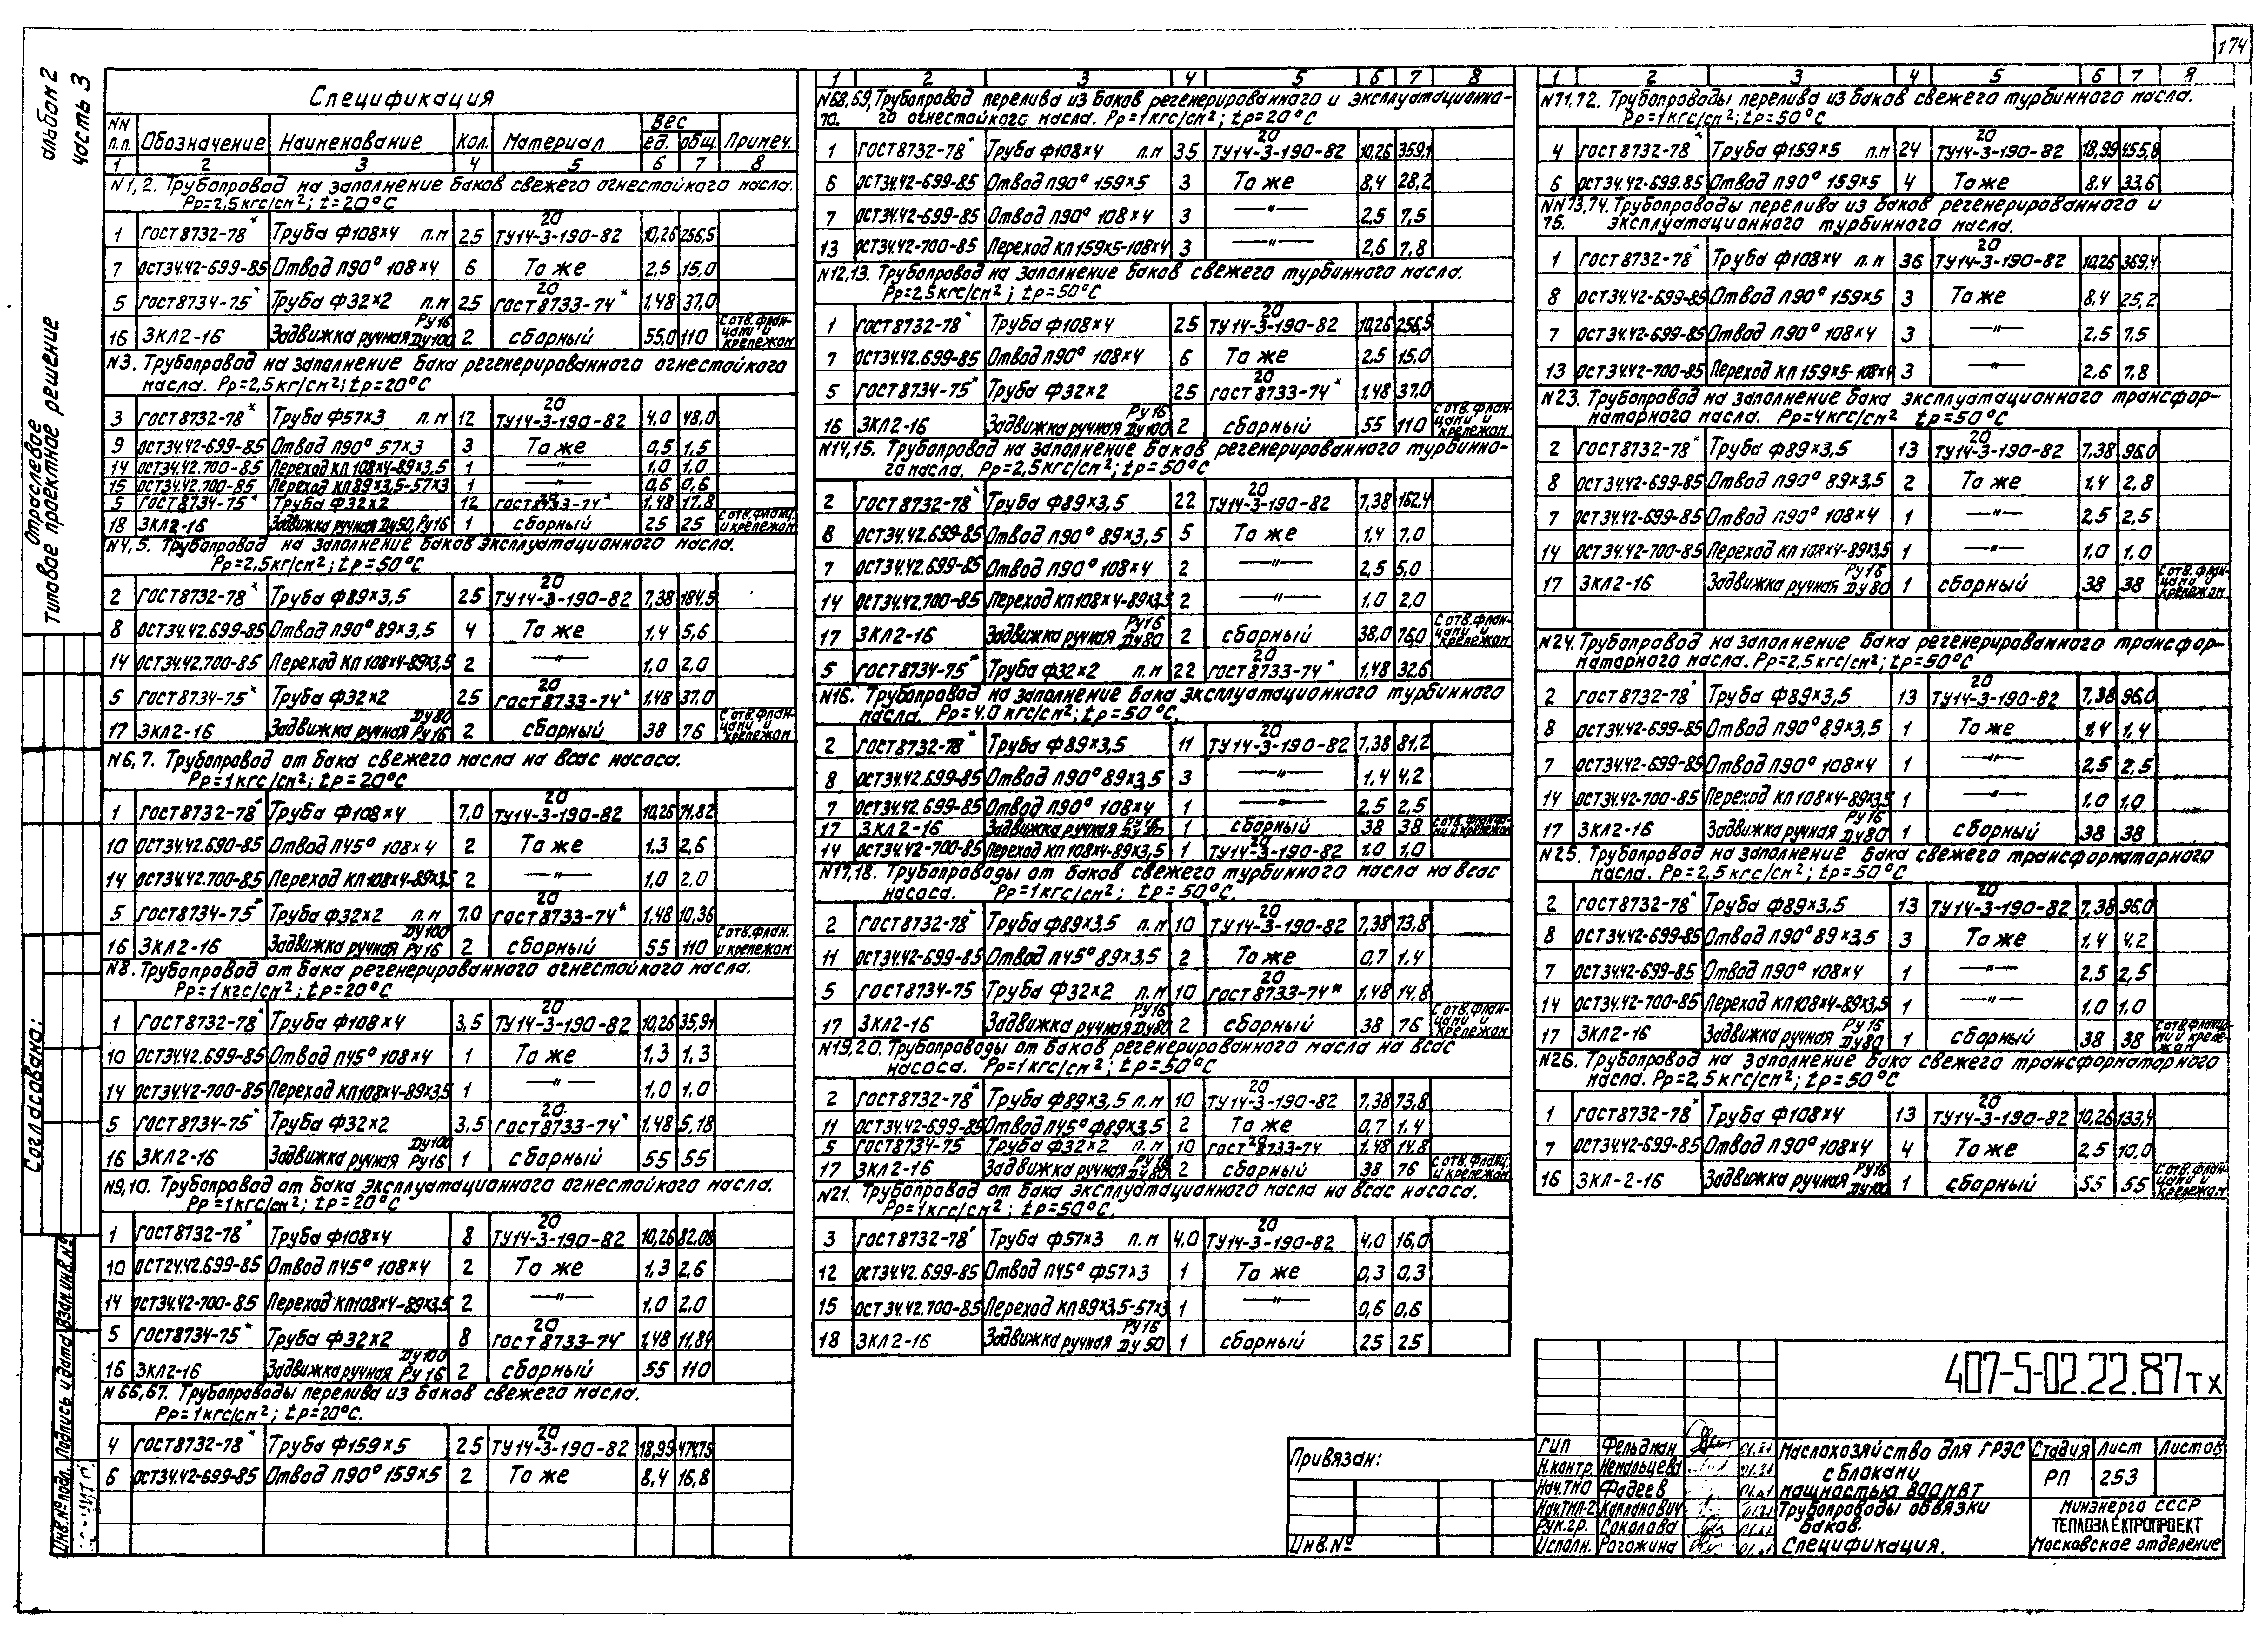 174
альбом 2
часть 3
Отраслевое
типовое проектное решение
Согласовано:
Инв.№ подл. Подпись и дата Взам.инв.№
Спецификация
NN п.п. Обозначение Наименование Кол. Материал Вес ед. общ. Примеч.
1 2 3 4 5 6 7 8
N1,2. Трубопровод на заполнение баков свежего огнестойкого масла.
Рр=2,5кгс/см²; t=20°С
1 ГОСТ8732-78* Труба ф108×4 п.м 25 20 ТУ14-3-190-82 10,26 256,5
7 ОСТ34.42-699-85 Отвод П90° 108×4 6 То же 2,5 15,0
5 ГОСТ8734-75* Труба ф32×2 п.м 25 20 ГОСТ8733-74* 1,48 37,0
16 ЗКЛ2-16 Задвижка ручная Ру16 Ду100 2 сборный 55,0 110 С отв. флан-цами и крепежом
N3. Трубопровод на заполнение бака регенерированного огнестойкого
масла. Рр=2,5кг/см²; tр=20°С
3 ГОСТ8732-78* Труба ф57×3 п.м 12 20 ТУ14-3-190-82 4,0 48,0
9 ОСТ34.42-699-85 Отвод П90° 57×3 3 То же 0,5 1,5
14 ОСТ34.42.700-85 Переход КП108×4-89×3,5 1 —"— 1,0 1,0
15 ОСТ34.42.700-85 Переход КП89×3,5-57×3 1 —"— 0,6 0,6
5 ГОСТ8734-75* Труба ф32×2 12 20 ГОСТ8733-74* 1,48 17,8
18 ЗКЛ2-16 Задвижка ручная Ду50, Ру16 1 сборный 25 25 С отв. фланц. и крепежом
N4,5. Трубопровод на заполнение баков эксплуатационного масла.
Рр=2,5кг/см²; tр=50°С
2 ГОСТ8732-78* Труба ф89×3,5 25 20 ТУ14-3-190-82 7,38 184,5
8 ОСТ34.42.699-85 Отвод П90° 89×3,5 4 То же 1,4 5,6
14 ОСТ34.42.700-85 Переход КП108×4-89×3,5 2 —"— 1,0 2,0
5 ГОСТ8734-75* Труба ф32×2 25 20 ГОСТ8733-74* 1,48 37,0
17 ЗКЛ2-16 Задвижка ручная Ду80 Ру16 2 сборный 38 76 С отв. флан-цами и крепежом
N6,7. Трубопровод от бака свежего масла на всас насоса.
Рр=1кгс/см²; tр=20°С
1 ГОСТ8732-78* Труба ф108×4 7,0 20 ТУ14-3-190-82 10,26 71,82
10 ОСТ34.42.690-85 Отвод П45° 108×4 2 То же 1,3 2,6
14 ОСТ34.42.700-85 Переход КП108×4-89×3,5 2 —"— 1,0 2,0
5 ГОСТ8734-75* Труба ф32×2 п.м 7,0 20 ГОСТ8733-74* 1,48 10,36
16 ЗКЛ2-16 Задвижка ручная Ду100 Ру16 2 сборный 55 110 С отв. флан. и крепежом
N8. Трубопровод от бака регенерированного огнестойкого масла.
Рр=1кгс/см²; tр=20°С
1 ГОСТ8732-78* Труба ф108×4 3,5 20 ТУ14-3-190-82 10,26 35,91
10 ОСТ34.42.699-85 Отвод П45° 108×4 1 То же 1,3 1,3
14 ОСТ34.42-700-85 Переход КП108×4-89×3,5 1 —"— 1,0 1,0
5 ГОСТ8734-75* Труба ф32×2 3,5 20. ГОСТ8733-74* 1,48 5,18
16 ЗКЛ2-16 Задвижка ручная Ду100 Ру16 1 сборный 55 55
N9,10. Трубопровод от бака эксплуатационного огнестойкого масла.
Рр=1кгс/см²; tр=20°С
1 ГОСТ8732-78* Труба ф108×4 8 20 ТУ14-3-190-82 10,26 82,08
10 ОСТ24.42.699-85 Отвод П45° 108×4 2 То же 1,3 2,6
14 ОСТ34.42-700-85 Переход КП108×4-89×3,5 2 —"— 1,0 2,0
5 ГОСТ8734-75* Труба ф32×2 8 20 ГОСТ8733-74* 1,48 11,84
16 ЗКЛ2-16 Задвижка ручная Ду100 Ру16 2 сборный 55 110
N66,67. Трубопроводы перелива из баков свежего масла.
Рр=1кгс/см²; tр=20°С.
4 ГОСТ8732-78* Труба ф159×5 25 20 ТУ14-3-190-82 18,99 474,75
6 ОСТ34.42-699-85 Отвод П90° 159×5 2 То же 8,4 16,8
1 2 3 4 5 6 7 8
N68,69, Трубопровод перелива из баков регенерированного и эксплуатационно-
70. го огнестойкого масла. Рр=1кгс/см²; tр=20°С
1 ГОСТ8732-78* Труба ф108×4 п.м 35 20 ТУ14-3-190-82 10,26 359,1
6 ОСТ34.42-699-85 Отвод П90° 159×5 3 То же 8,4 28,2
7 ОСТ34.42-699-85 Отвод П90° 108×4 3 —"— 2,5 7,5
13 ОСТ34.42-700-85 Переход КП159×5-108×4 3 —"— 2,6 7,8
N12,13. Трубопровод на заполнение баков свежего турбинного масла.
Рр=2,5кгс/см²; tр=50°С
1 ГОСТ8732-78* Труба ф108×4 25 20 ТУ14-3-190-82 10,26 256,5
7 ОСТ34.42.699-85 Отвод П90° 108×4 6 То же 2,5 15,0
5 ГОСТ8734-75* Труба ф32×2 25 20 ГОСТ8733-74* 1,48 37,0
16 ЗКЛ2-16 Задвижка ручная Ру16 Ду100 2 сборный 55 110 С отв. флан-цами и крепежом
N14,15. Трубопровод на заполнение баков регенерированного турбинно-
го масла. Рр=2,5кгс/см²; tр=50°С
2 ГОСТ8732-78* Труба ф89×3,5 22 20 ТУ14-3-190-82 7,38 162,4
8 ОСТ34.42.699-85 Отвод П90° 89×3,5 5 То же 1,4 7,0
7 ОСТ34.42.699-85 Отвод П90° 108×4 2 —"— 2,5 5,0
14 ОСТ34.42.700-85 Переход КП108×4-89×3,5 2 —"— 1,0 2,0
17 ЗКЛ2-16 Задвижка ручная Ру16 Ду80 2 сборный 38,0 76,0 С отв. флан-цами и крепежом
5 ГОСТ8734-75* Труба ф32×2 п.м 22 20 ГОСТ8733-74* 1,48 32,6
N16. Трубопровод на заполнение бака эксплуатационного турбинного
масла. Рр=4.0 кгс/см²; tр=50°С.
2 ГОСТ8732-78* Труба ф89×3,5 11 20 ТУ14-3-190-82 7,38 81,2
8 ОСТ34.42.699-85 Отвод П90° 89×3,5 3 —"— 1,4 4,2
7 ОСТ34.42.699-85 Отвод П90° 108×4 1 —"— 2,5 2,5
17 ЗКЛ2-16 Задвижка ручная Ру16 Ду80 1 сборный 38 38 С отв. фланца-ми и крепежом
14 ОСТ34.42-700-85 Переход КП108×4-89×3,5 1 20 ТУ14-3-190-82 1,0 1,0
N17,18. Трубопроводы от баков свежего турбинного масла на всас
насоса. Рр=1кгс/см²; tр=50°С.
2 ГОСТ8732-78* Труба ф89×3,5 п.м 10 20 ТУ14-3-190-82 7,38 73,8
11 ОСТ34.42-699-85 Отвод П45° 89×3,5 2 То же 0,7 1,4
5 ГОСТ8734-75 Труба ф32×2 п.м 10 20 ГОСТ8733-74* 1,48 14,8
17 ЗКЛ2-16 Задвижка ручная Ру16 Ду80 2 сборный 38 76 С отв. флан-цами и крепежом
N19,20. Трубопроводы от баков регенерированного масла на всас
насоса. Рр=1кгс/см²; tр=50°С
2 ГОСТ8732-78* Труба ф89×3,5 п.м 10 20 ТУ14-3-190-82 7,38 73,8
11 ОСТ34.42-699-85 Отвод П45° ф89×3,5 2 То же 0,7 1,4
5 ГОСТ8734-75 Труба ф32×2 п.м 10 20 ГОСТ8733-74 1,48 14,8
17 ЗКЛ2-16 Задвижка ручная Ру16 Ду80 2 сборный 38 76 С отв. фланц. и крепежом
N21. Трубопровод от бака эксплуатационного масла на всас насоса.
Рр=1кгс/см²; tр=50°С.
3 ГОСТ8732-78* Труба ф57×3 п.м 4,0 20 ТУ14-3-190-82 4,0 16,0
12 ОСТ34.42.699-85 Отвод П45° ф57×3 1 То же 0,3 0,3
15 ОСТ34.42.700-85 Переход КП89×3,5-57×3 1 —"— 0,6 0,6
18 ЗКЛ2-16 Задвижка ручная Ру16 Ду50 1 сборный 25 25
1 2 3 4 5 6 7 8
N71,72. Трубопроводы перелива из баков свежего турбинного масла.
Рр=1кгс/см²; tр=50°С
4 ГОСТ8732-78* Труба ф159×5 п.м 24 20 ТУ14-3-190-82 18,99 455,8
6 ОСТ34.42-699.85 Отвод П90° 159×5 4 То же 8.4 33,6
NN73,74. Трубопроводы перелива из баков регенерированного и
75. эксплуатационного турбинного масла.
1 ГОСТ8732-78* Труба ф108×4 п.м 36 20 ТУ14-3-190-82 10,26 369,4
8 ОСТ34.42-699-85 Отвод П90° 159×5 3 То же 8,4 25,2
7 ОСТ34.42-699-85 Отвод П90° 108×4 3 —"— 2,5 7,5
13 ОСТ34.42-700-85 Переход КП159×5-108×4 3 —"— 2,6 7,8
N23. Трубопровод на заполнение бака эксплуатационного трансфор-
маторного масла. Рр=4кгс/см² tр=50°С
2 ГОСТ8732-78* Труба ф89×3,5 13 20 ТУ14-3-190-82 7,38 96,0
8 ОСТ34.42-699-85 Отвод П90° 89×3,5 2 То же 1,4 2,8
7 ОСТ34.42-699-85 Отвод П90° 108×4 1 —"— 2,5 2,5
14 ОСТ34.42-700-85 Переход КП108×4-89×3,5 1 —"— 1,0 1,0
17 ЗКЛ2-16 Задвижка ручная Ру16 Ду80 1 сборный 38 38 С отв. флан-цами и крепежом
N24. Трубопровод на заполнение бака регенерированного трансфор-
маторного масла. Рр=2,5кгс/см²; tр=50°С
2 ГОСТ8732-78* Труба ф89×3,5 13 20 ТУ14-3-190-82 7,38 96,0
8 ОСТ34.42-699-85 Отвод П90° 89×3,5 1 То же 1.4 1,4
7 ОСТ34.42-699-85 Отвод П90° 108×4 1 —"— 2,5 2,5
14 ОСТ34.42-700-85 Переход КП108×4-89×3,5 1 —"— 1,0 1,0
17 ЗКЛ2-16 Задвижка ручная Ру16 Ду80 1 сборный 38 38
N25. Трубопровод на заполнение бака свежего трансформаторного
масла. Рр=2,5кгс/см²; tр=50°С
2 ГОСТ8732-78* Труба ф89×3,5 13 20 ТУ14-3-190-82 7,38 96,0
8 ОСТ34.42-699-85 Отвод П90° 89×3,5 3 То же 1,4 4,2
7 ОСТ34.42-699-85 Отвод П90° 108×4 1 —"— 2,5 2,5
14 ОСТ34.42-700-85 Переход КП108×4-89×3,5 1 —"— 1,0 1,0
17 ЗКЛ2-16 Задвижка ручная Ру16 Ду80 1 сборный 38 38 С отв. фланца-ми и крепе-жом
N26. Трубопровод на заполнение бака свежего трансформаторного
масла. Рр=2,5кгс/см²; tр=50°С
1 ГОСТ8732-78* Труба ф108×4 13 20 ТУ14-3-190-82 10,26 133,4
7 ОСТ34.42-699-85 Отвод П90° 108×4 4 То же 2,5 10,0
16 ЗКЛ-2-16 Задвижка ручная Ру16 Ду100 1 сборный 55 55 С отв. флан-цами и крепежом
Привязан:
Инв.№
407-5-02.22.87 ТХ
ГИП Фельдман
Н.контр. Немальцева
Нач.ТМО Фадеев
Нач.ТМП-2 Капланович
Рук.гр. Соколова
Исполн. Рогожина
Маслохозяйство для ГРЭС
с блоками
мощностью 800МВт
Стадия Лист Листов
РП 253
Трубопроводы обвязки
баков.
Спецификация.
Минэнерго СССР
ТЕПЛОЭЛЕКТРОПРОЕКТ
Московское отделение